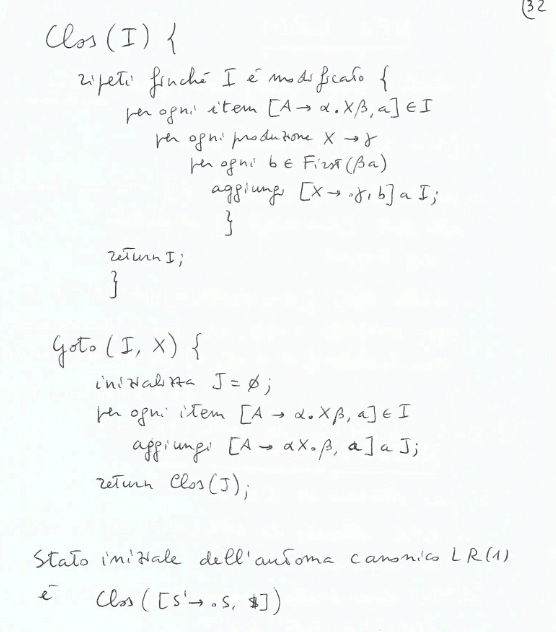 (32
Clos (I) {
ripeti finché I è modificato {
per ogni item [A → α.Xβ, a] ∈ I
per ogni produzione X → γ
per ogni b ∈ First (βa)
aggiungi [X → .γ, b] a I;
}
return I;
}
Goto (I, X) {
inizializza J = ø;
per ogni item [A → α.Xβ, a] ∈ I
aggiungi [A → αX.β, a] a J;
return Clos(J);
Stato iniziale dell'automa canonico LR(1)
è Clos ([S' → .S, $])